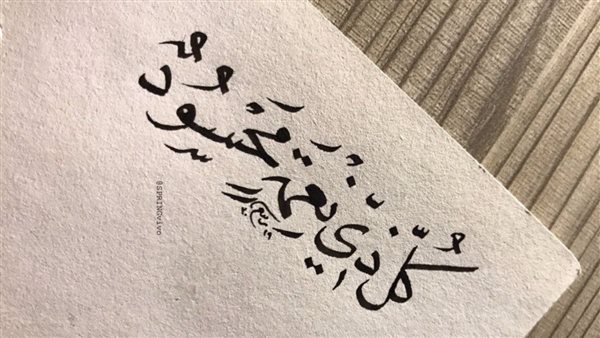 كُلُّ ذِي نِعْمَةٍ مَحْسُودٌ
@SPRINGVIVO